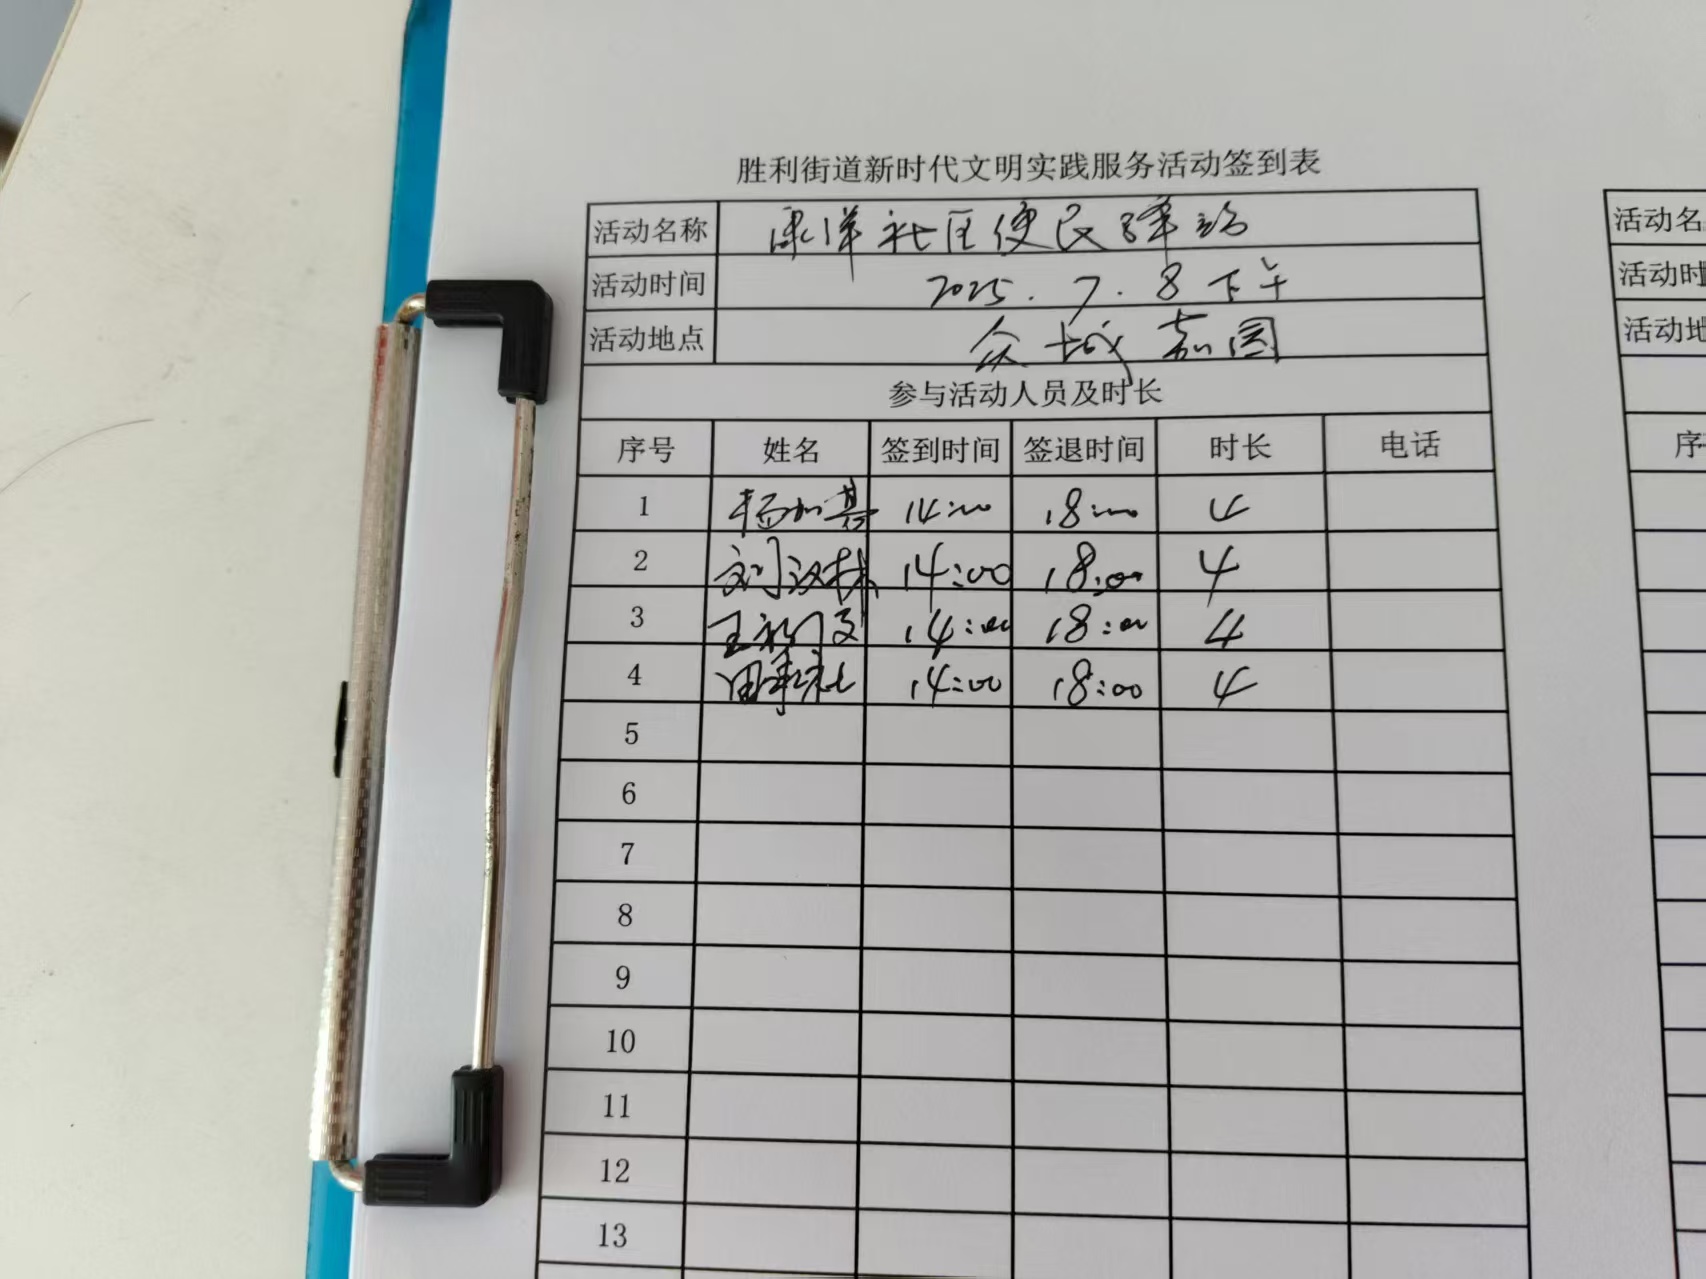 胜利街道新时代文明实践服务活动签到表
活动名称 康洋社区便民驿站 活动名
活动时间 2025.7.8下午 活动时
活动地点 众城嘉园 活动地
参与活动人员及时长
序号 姓名 签到时间 签退时间 时长 电话 序
1 杨如意 14:00 18:00 4
2 刘汉林 14:00 18:00 4
3 王 14:00 18:00 4
4 田 14:00 18:00 4
5
6
7
8
9
10
11
12
13